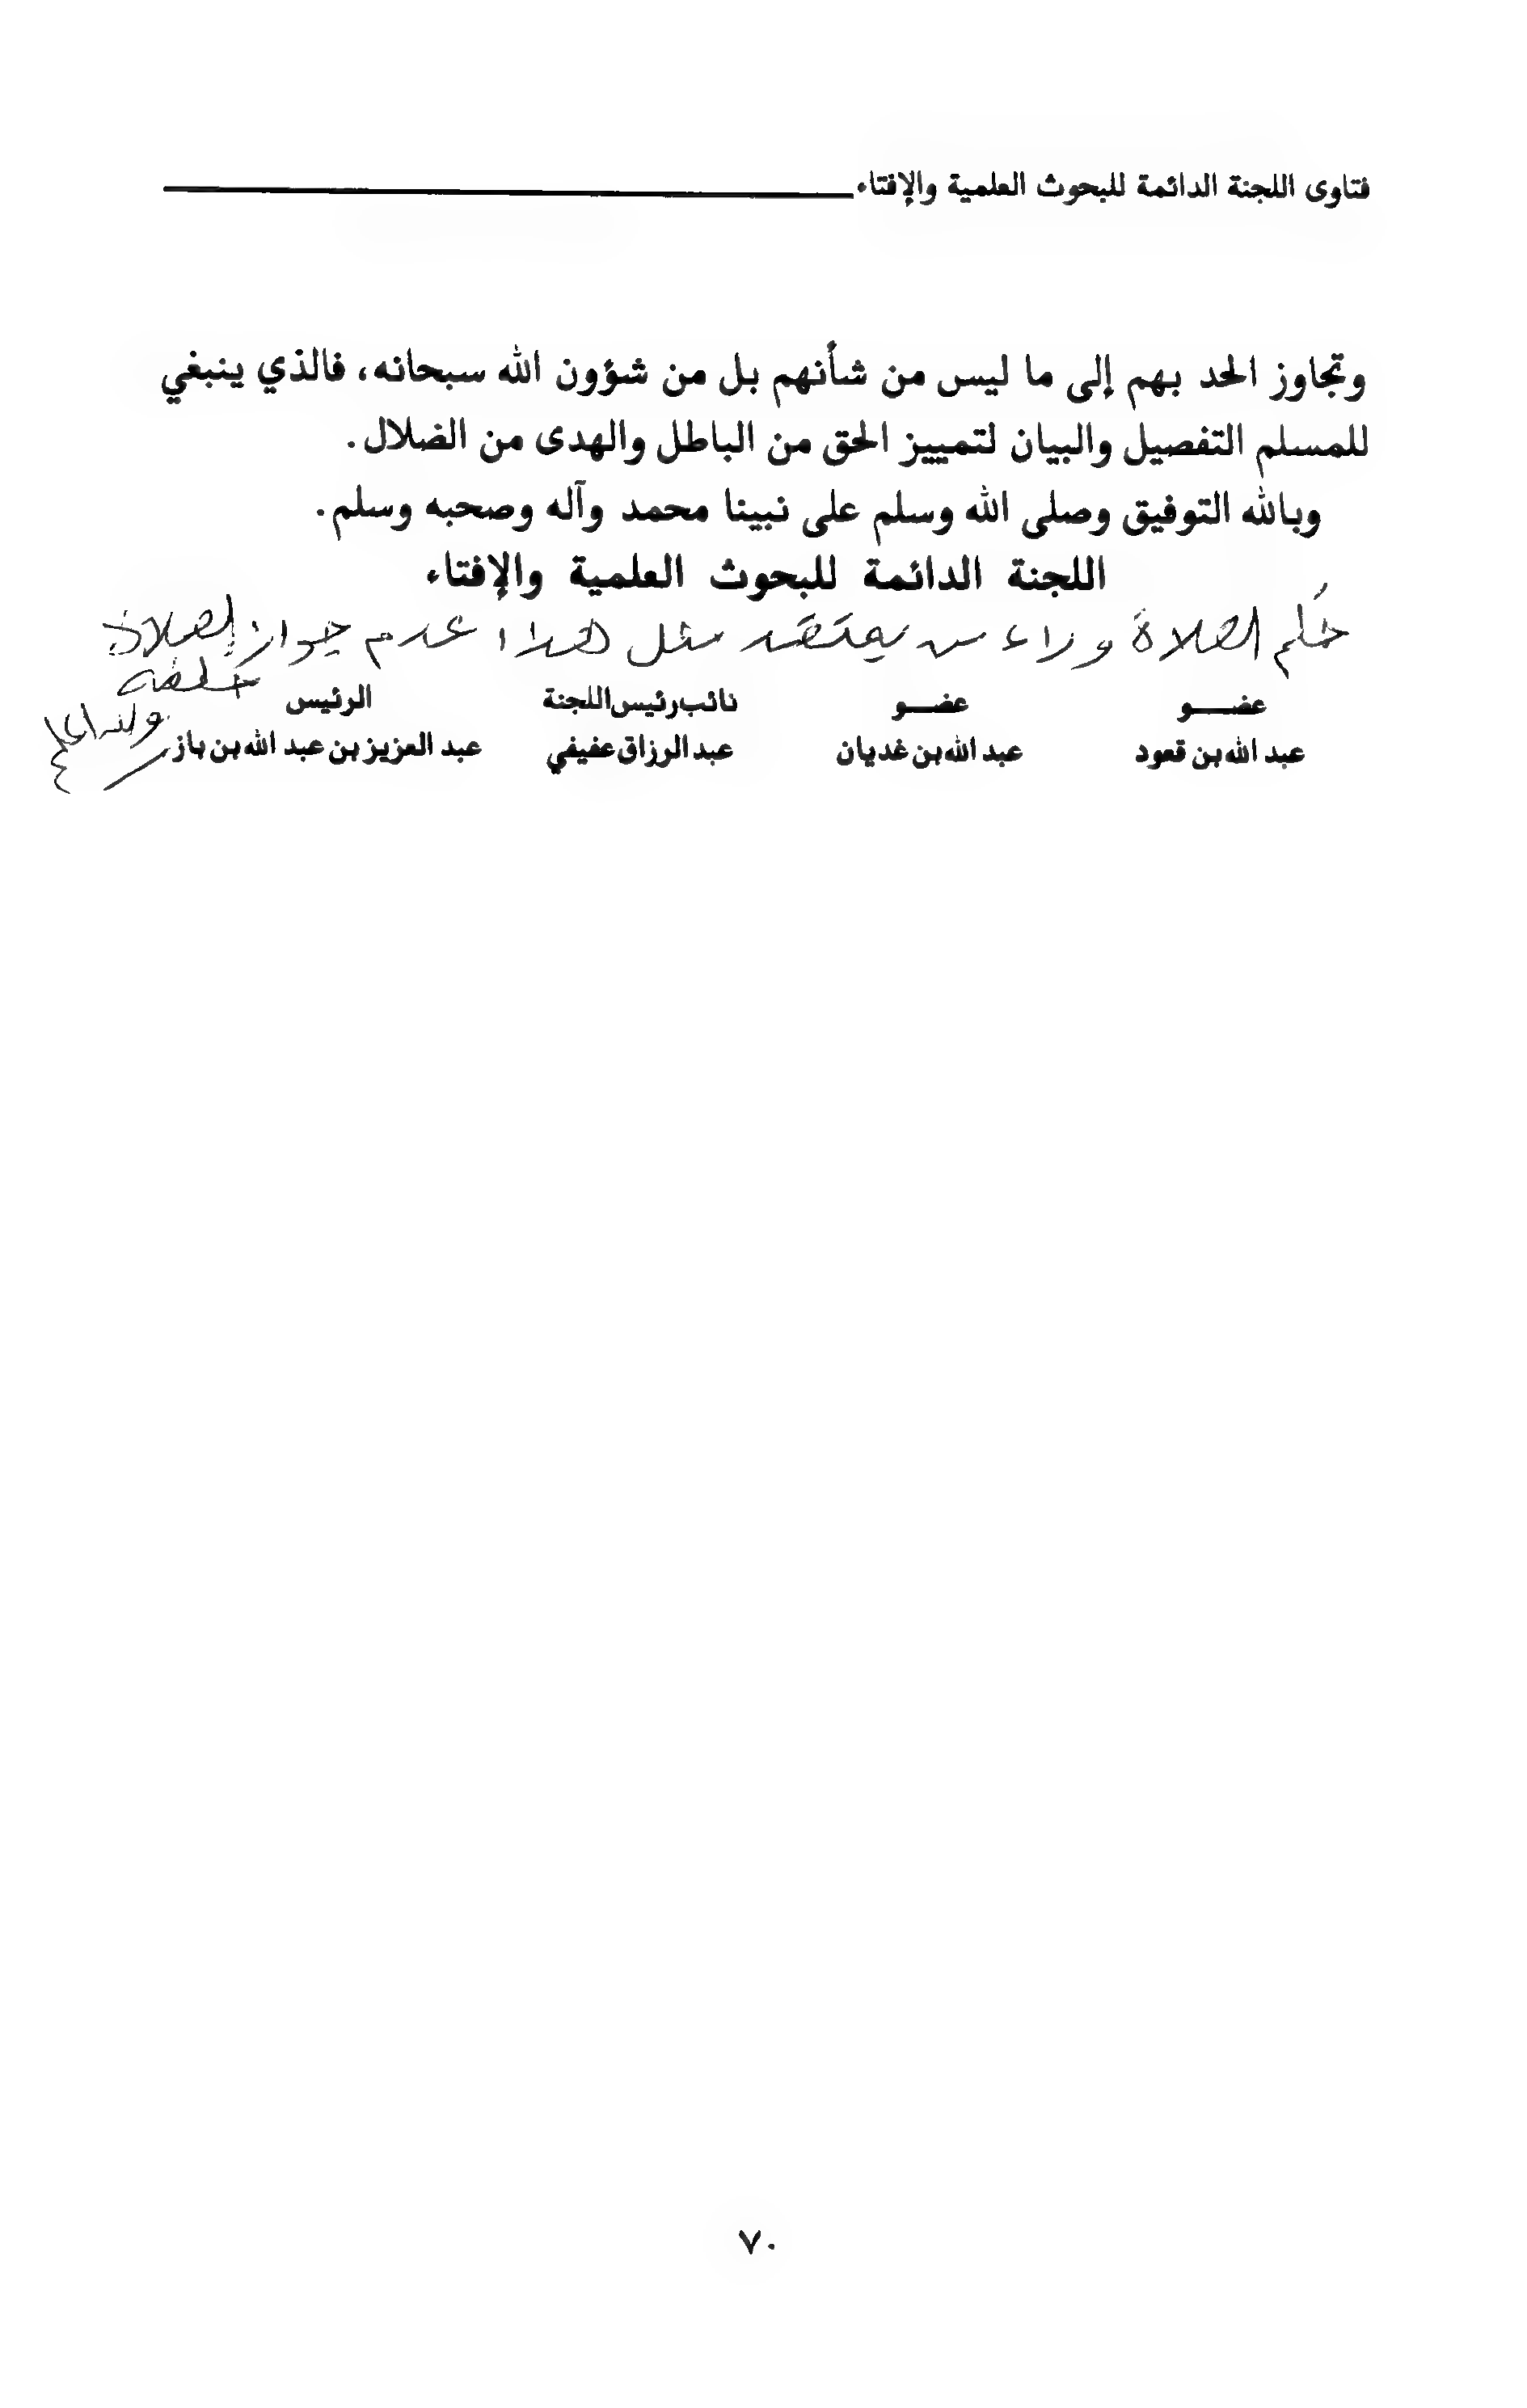 فتاوى اللجنة الدائمة للبحوث العلمية والإفتاء
وتجاوز الحد بهم إلى ما ليس من شأنهم بل من شؤون الله سبحانه، فالذي ينبغي
للمسلم التفصيل والبيان لتمييز الحق من الباطل والهدى من الضلال.
وبالله التوفيق وصلى الله وسلم على نبينا محمد وآله وصحبه وسلم.
اللجنة الدائمة للبحوث العلمية والإفتاء
حكم الصلاة وراء من يعتقد مثل هذا عدم جواز الصلاة
خلفه
والله اعلم
عضـــو عضـــو نائب رئيس اللجنة الرئيس
عبد الله بن قعود عبد الله بن غديان عبد الرزاق عفيفي عبد العزيز بن عبد الله بن باز
٧٠